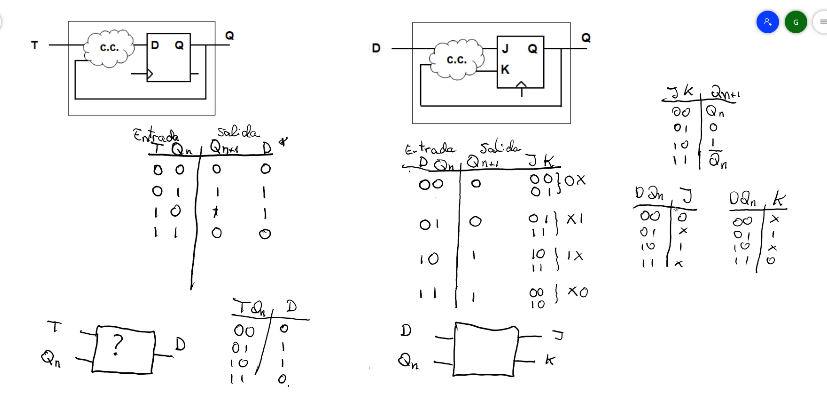 G
T
c.c.
D Q
Q
Entrada Salida
T Qn Qn+1 D *
0 0 0 0
0 1 1 1
1 0 1 1
1 1 0 0
T
Qn
?
D
T Qn D
00 0
01 1
10 1
11 0
D
c.c.
J Q
K
Q
Entrada Salida
D Qn Qn+1 J K
00 0 00 } 0X
01
01 0 01 } X1
11
10 1 10 } 1X
11
11 1 00 } X0
10
D
Qn
J
K
J K Qn+1
00 Qn
01 0
10 1
11 Q̅n
D Qn J
00 0
01 X
10 1
11 X
D Qn K
00 X
01 1
10 X
11 0